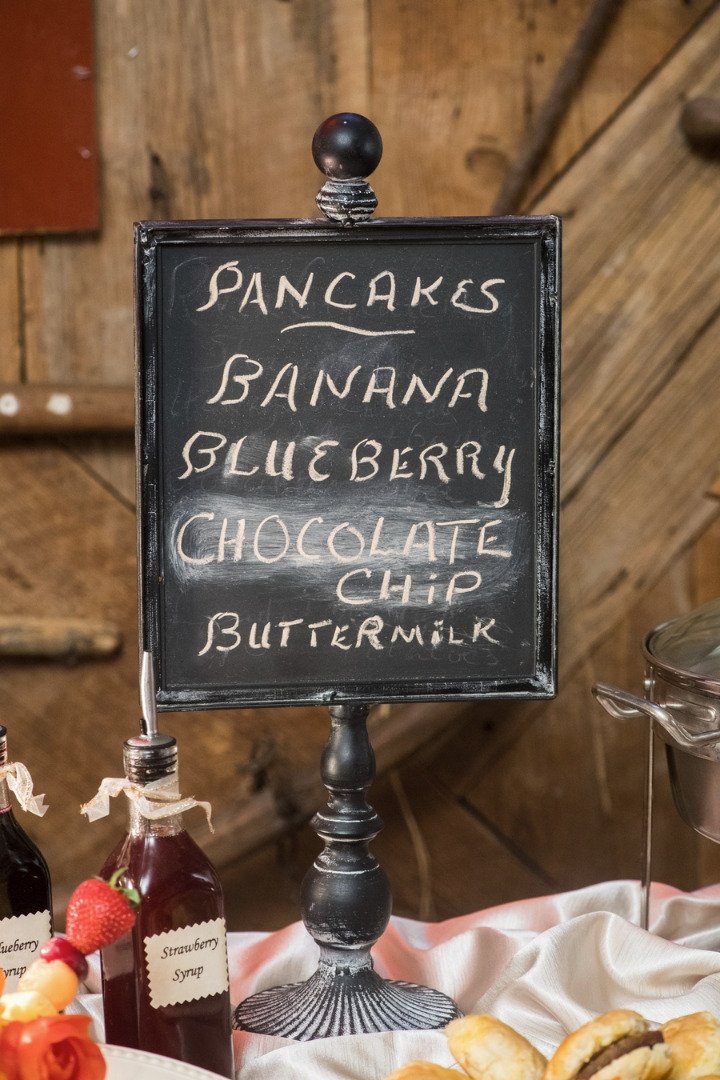 PANCAKES
BANANA
BLUEBERRY
CHOCOLATE
CHiP
BUTTERMiLK
Strawberry
Syrup